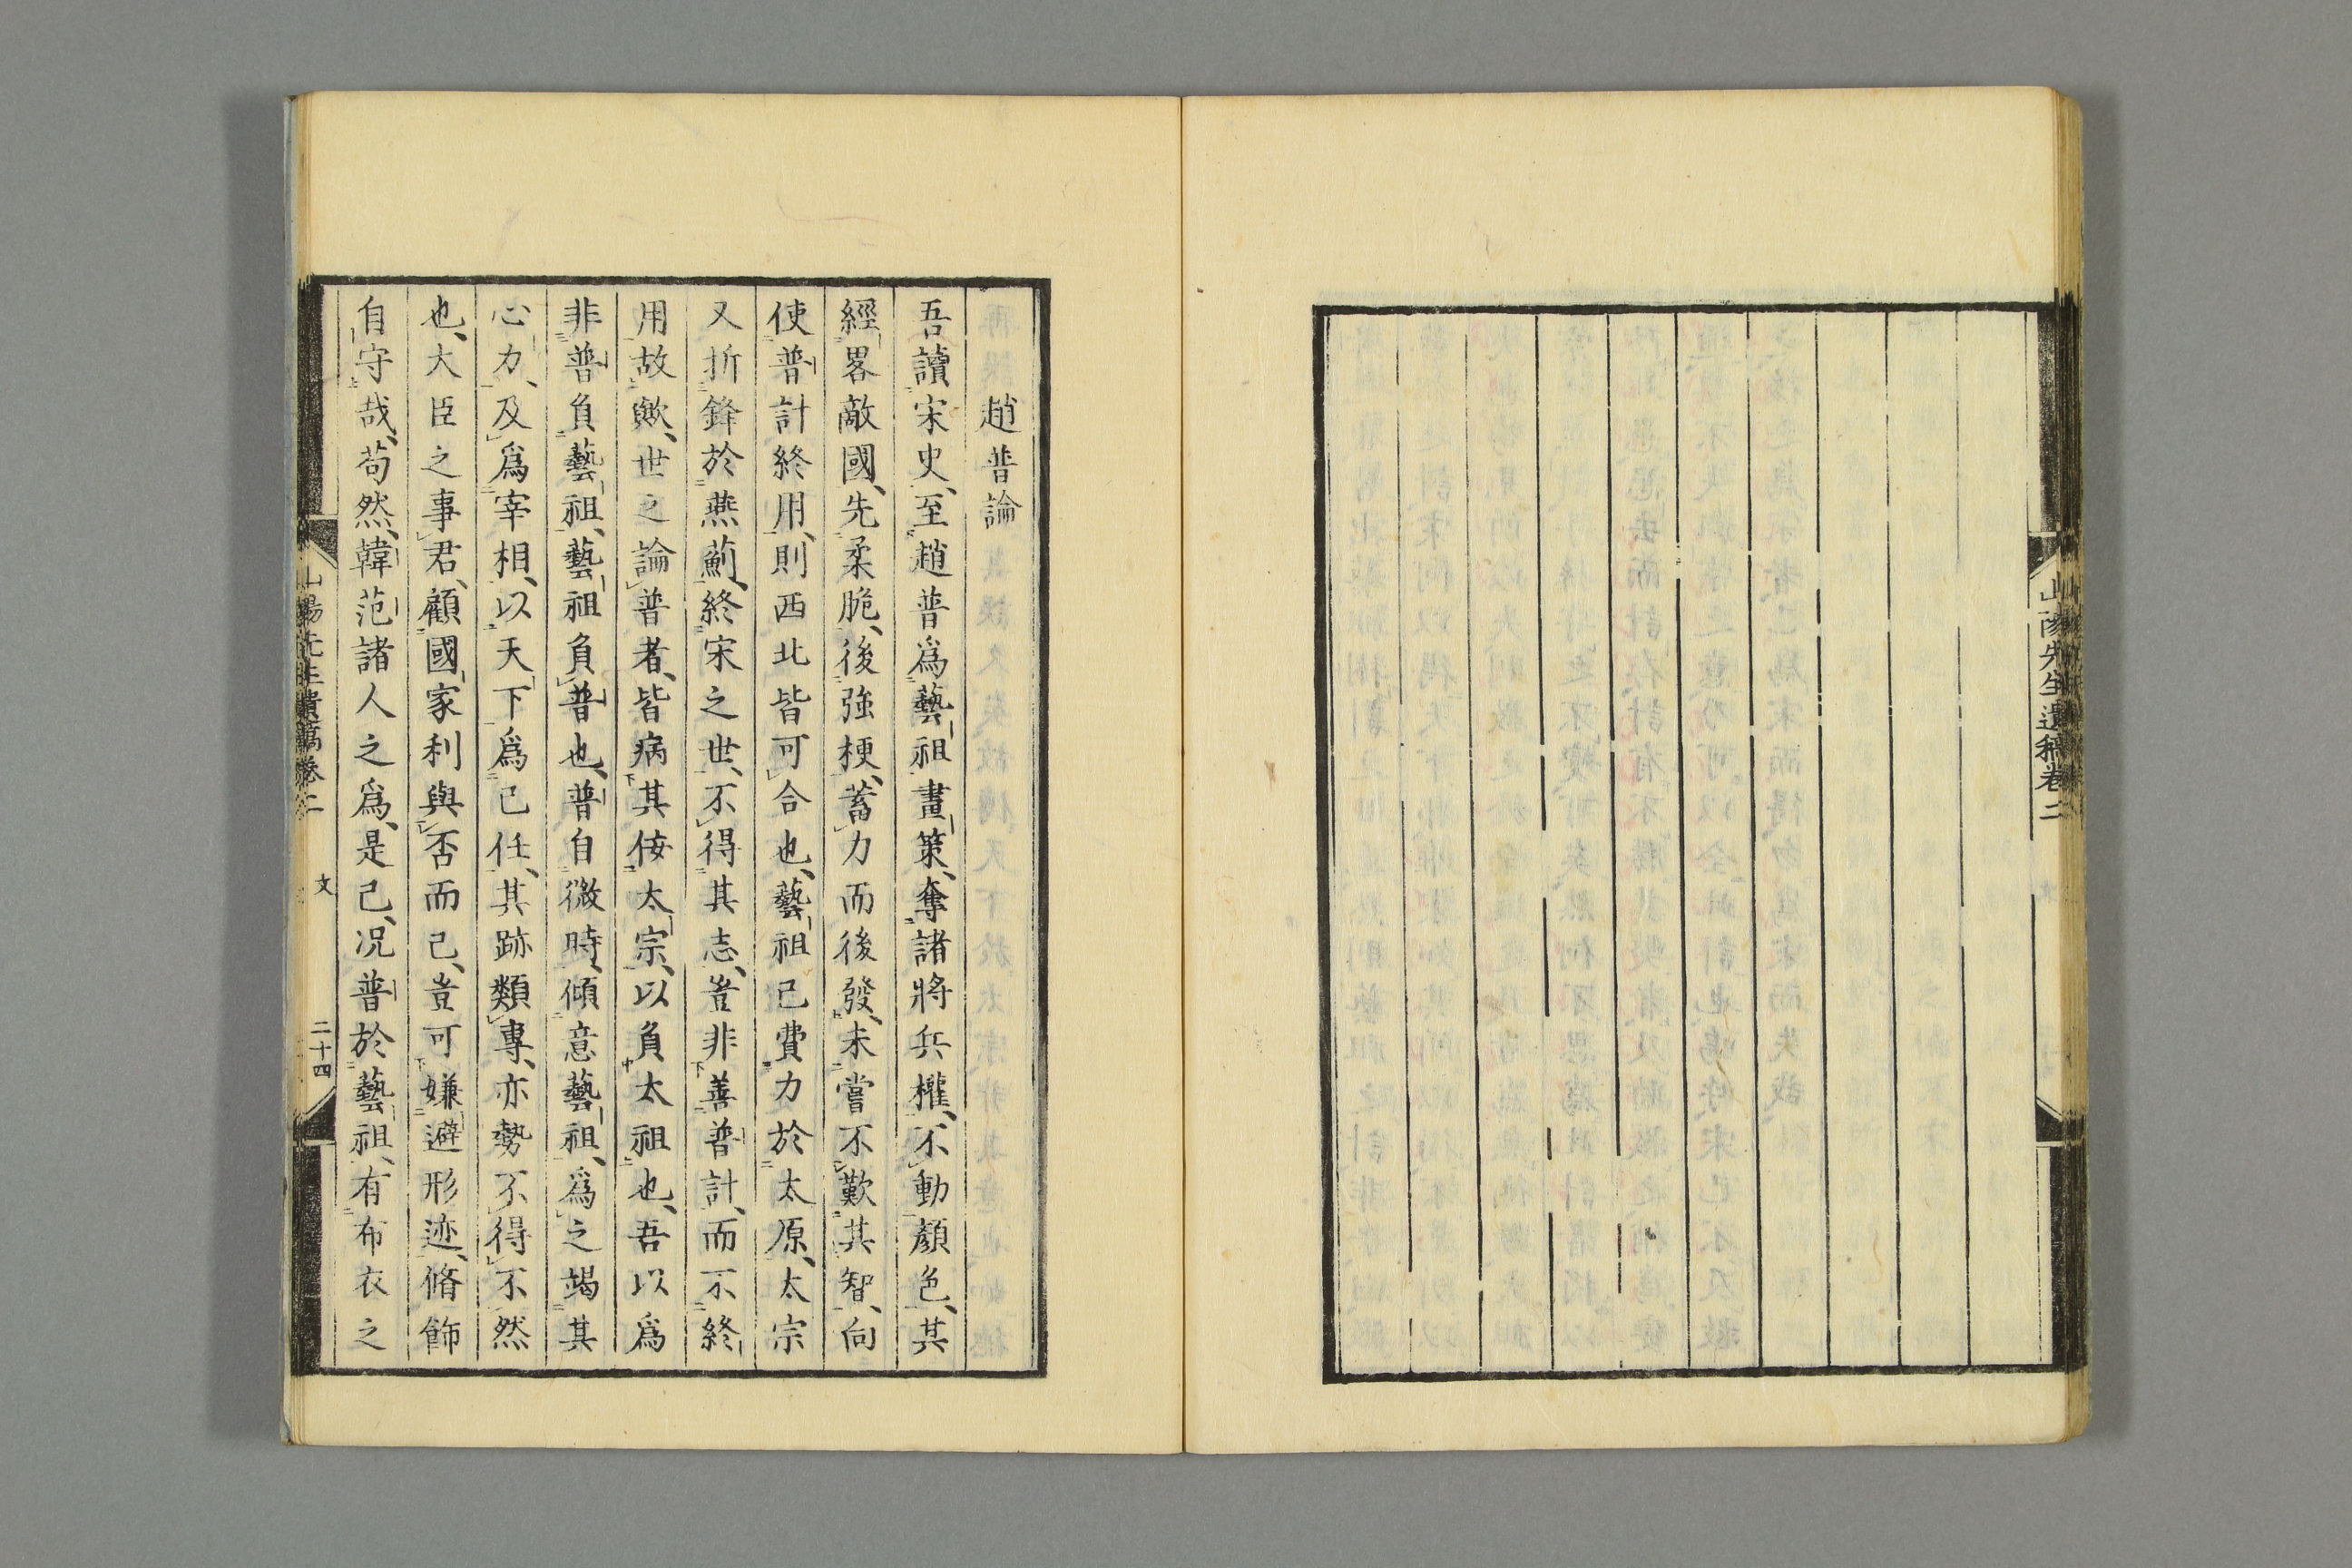 山陽先生遺稿卷二
趙普論
吾讀宋史、至趙普爲藝祖畫策、奪諸將兵權、不動顏色、其
經畧敵國、先柔脆、後強梗、蓄力而後發、未嘗不歎其智、向
使普計終用、則西北皆可合也、藝祖已費力於太原、太宗
又折鋒於燕薊、終宋之世、不得其志、豈非善普計、而不終
用故歟、世之論普者、皆病其侫太宗、以負太祖也、吾以爲
非普負藝祖、藝祖負普也、普自微時、傾意藝祖、爲之竭其
心力、及爲宰相、以天下爲己任、其跡類專、亦勢不得不然
也、大臣之事君、顧國家利與否而已、豈可嫌避形迹、脩飾
自守哉、苟然、韓范諸人之爲、是已、况普於藝祖、有布衣之
山陽先生遺稿卷二
文
二十四